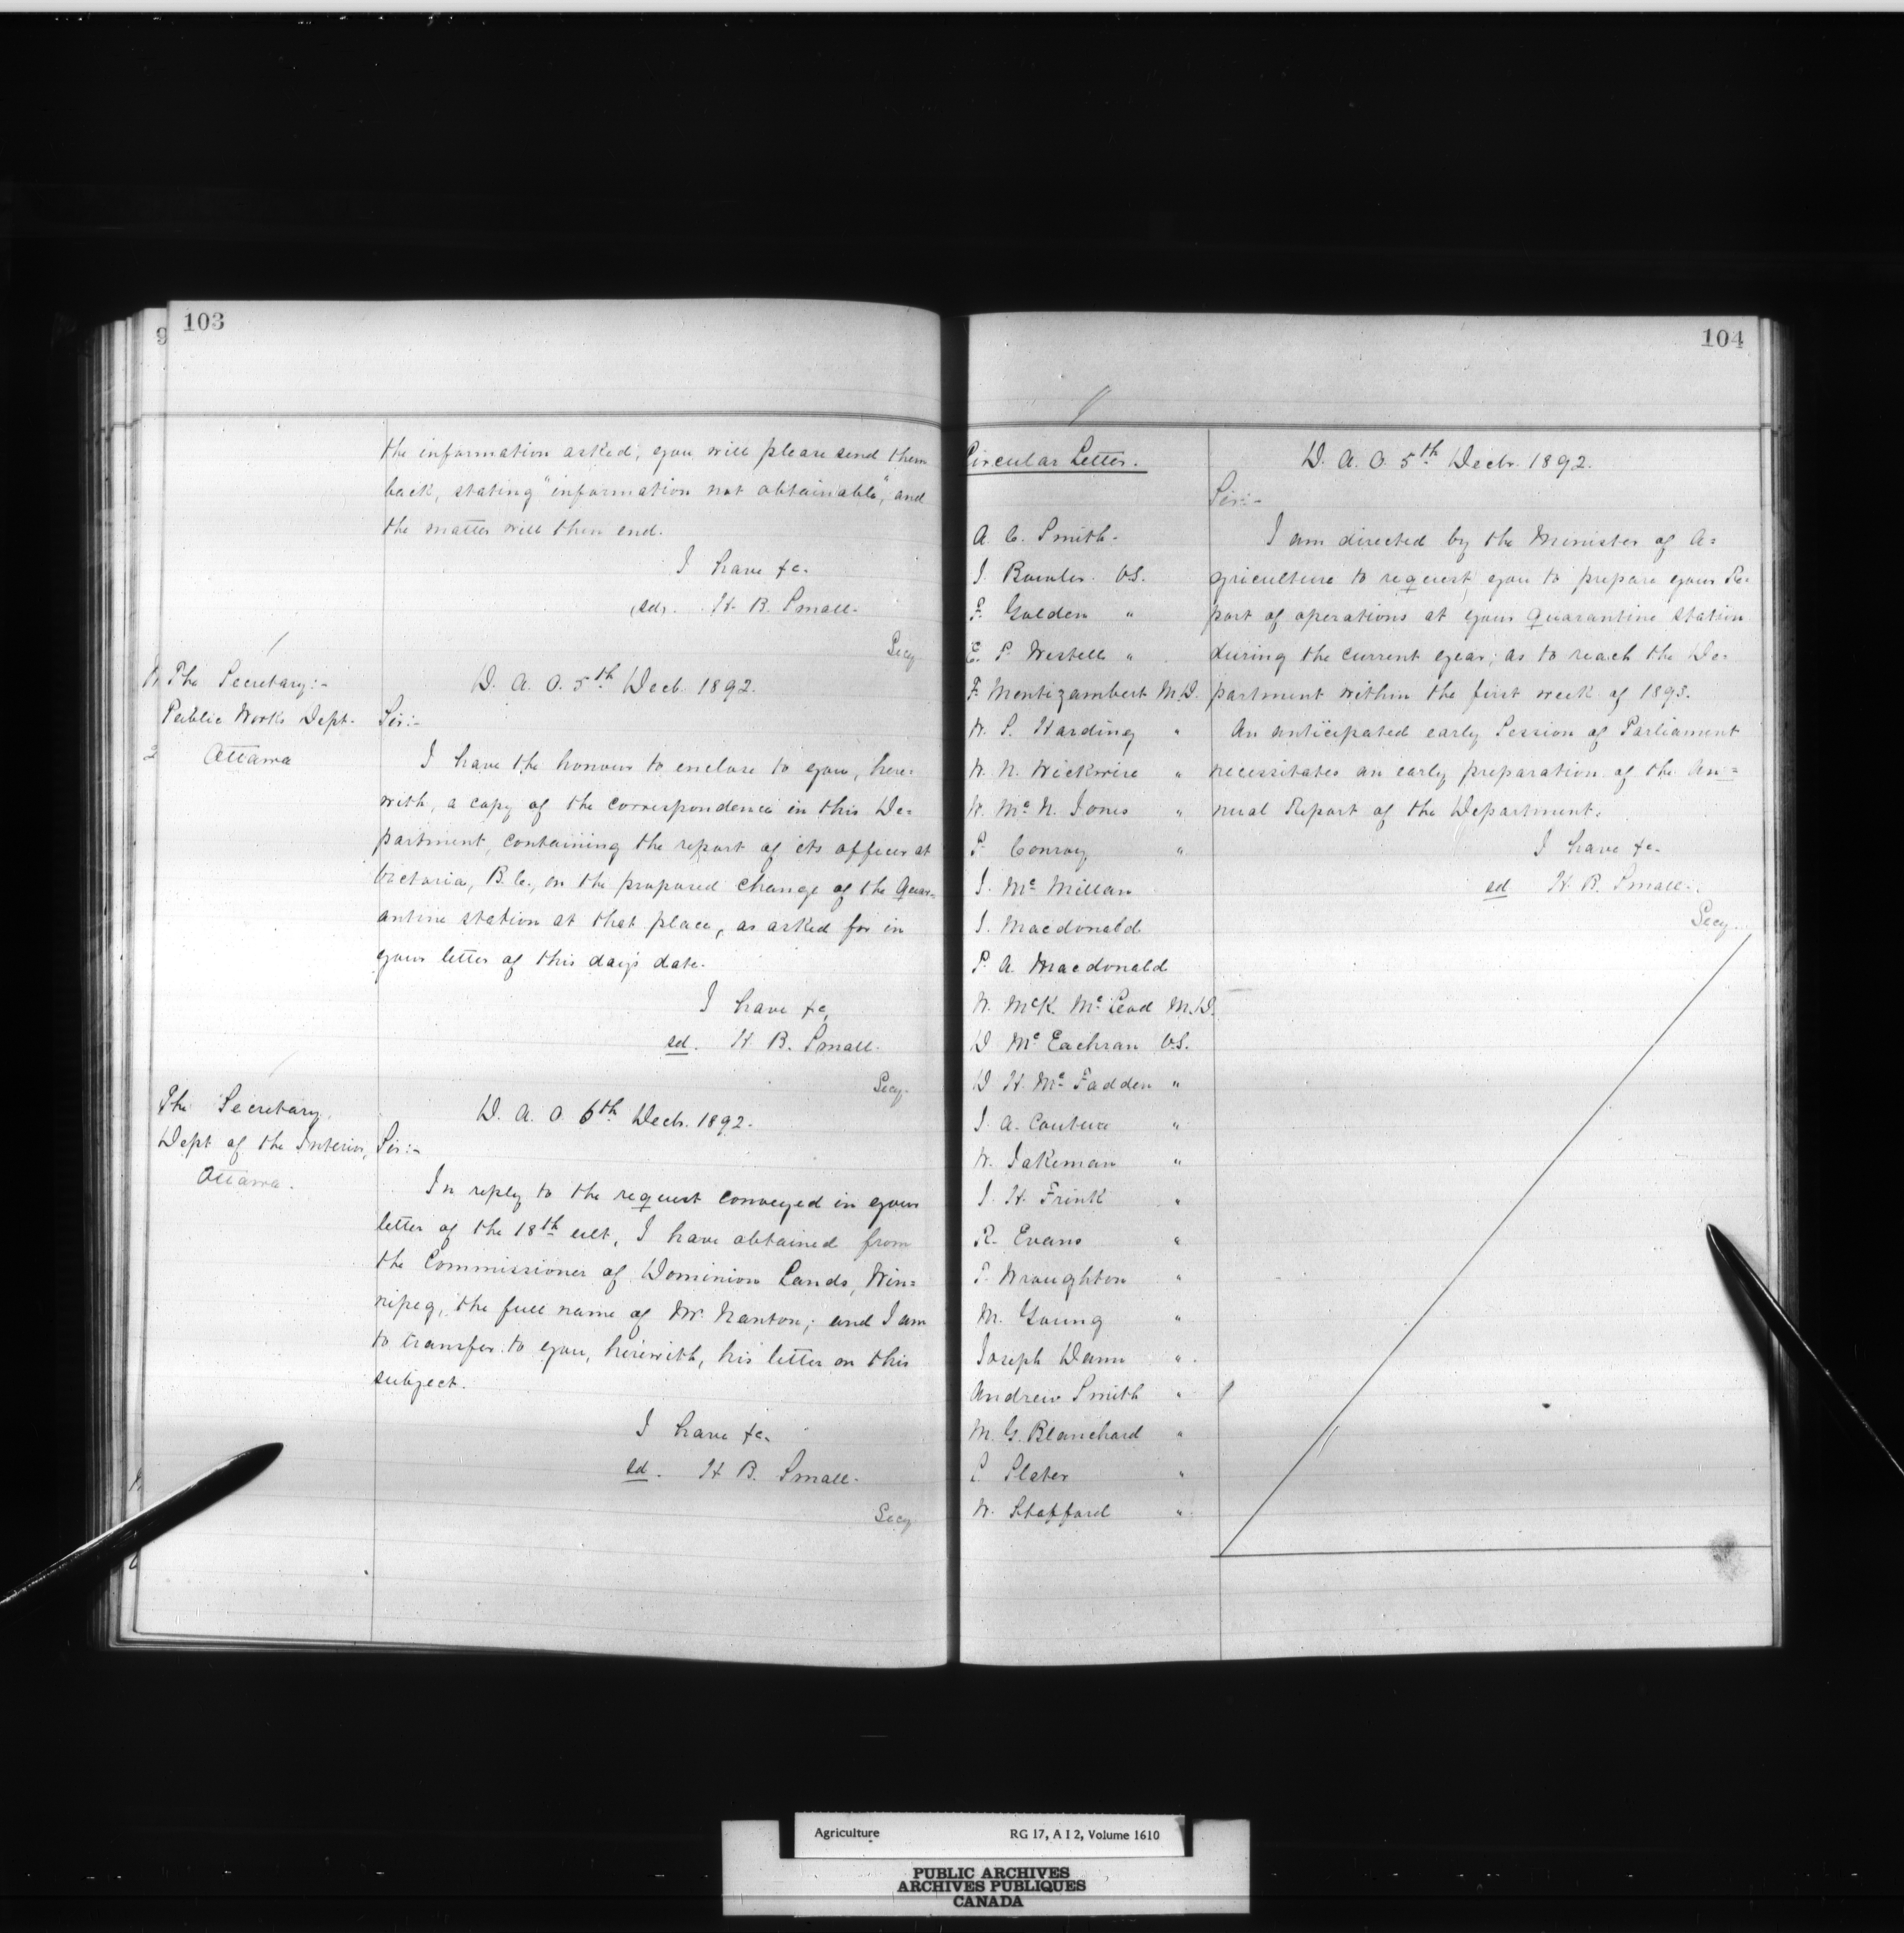 103
the information asked; you will please send them
back, stating "information not obtainable", and
the matter will then end.
I have &c.
(sd). H. B. Small.
Secy
The Secretary:-
Public Works Dept.
Ottawa
D. A. O. 5th Decb. 1892.
Sir:-
I have the honour to enclose to you, here=
with, a copy of the correspondence in this De=
partment, containing the report of its officer at
Victoria, B.C., on the proposed change of the Quar=
antine station at that place, as asked for in
your letter of this day's date.
I have &c,
sd. H. B. Small.
Secy.
The Secretary,
Dept of the Interior,
Ottawa.
D. A. O. 6th Decb. 1892.
Sir:-
In reply to the request conveyed in your
letter of the 18th ult, I have obtained from
the Commissioner of Dominion Lands, Win=
nipeg, the full name of Mr. Nanton; and I am
to transfer to you, herewith, his letter on this
subject.
I have &c.
sd. H. B. Small.
Secy
104
Circular Letter.
A. C. Smith.
V.S.
F. Golden "
E. P. Westell "
F. Montizambert M.D.
W. S. Harding "
W. N. Wickwire "
W. Mc N. Jones "
P. Conroy "
J. Mc Millan
J. Macdonald
P. A. Macdonald
W. McK. Mc Leod M.D.
D Mc Eachran V.S.
D H. Mc Fadden "
J. A. Couture "
W. Jakeman "
J. H. Frink "
R. Evans "
T. Wroughton "
M. Young "
Joseph Dann "
Andrew Smith "
M. G. Blanchard "
C Slater "
W. Stafford "
D. A. O. 5th Decb. 1892.
Sir:-
I am directed by the Minister of A=
griculture to request you to prepare your Re=
port of operations at your Quarantine Station
during the current year; as to reach the De=
partment within the first week of 1893.
An anticipated early Session of Parliament
necessitates an early preparation of the An=
nual Report of the Department.
I have &c.
sd H. B. Small.
Secy.
Agriculture RG 17, A I 2, Volume 1610
PUBLIC ARCHIVES
ARCHIVES PUBLIQUES
CANADA